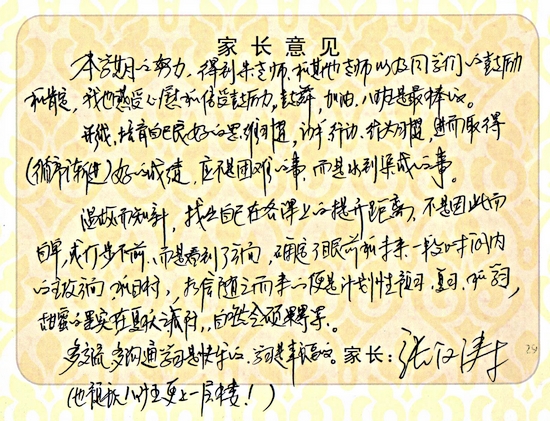 家长意见
本学期的努力，得到朱老师、和其他老师以及同学们的鼓励
和肯定，我也感受心慰和倍受鼓励，鼓舞，加油，你是最棒的。
形成，培育自己良好的思维习惯，动手行动、行为习惯，进而取得
(循序渐进)好的成绩，应不是困难的事，而是水到渠成的事。
温故而知新，找出自己在各课上的提升距离，不是因此而
自卑，或打步不前，而是看到了方向，确定了眼前和未来一段时间内
的主攻方向和目标，相信随之而来的便是计划性预习、复习、
甜蜜的果实在悬枝，自然会硕果累累。
多交流多沟通学习是快乐的，学习是幸福的。家长：
(也祝你！更上一层楼！)